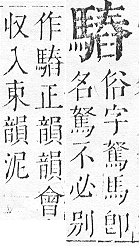 俗字駑馬即
名駑不必別
作正韻韻會
收入東韻泥